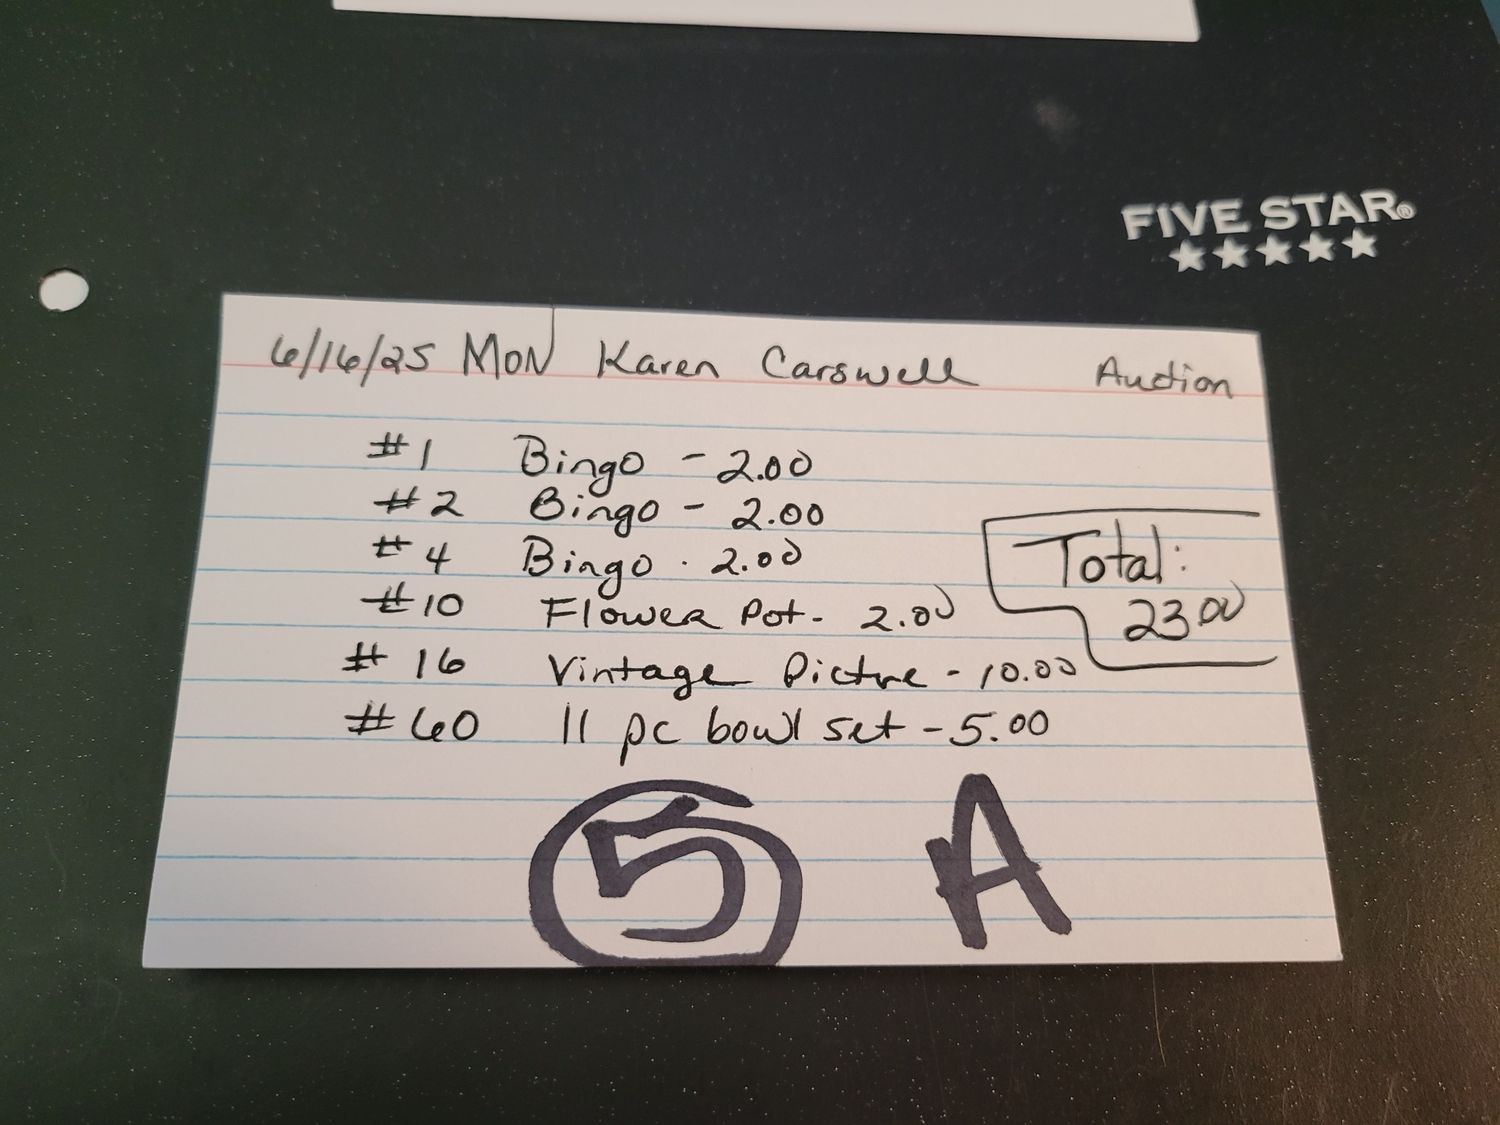 FIVE STAR®
6/16/25 MON Karen Carswell Auction
#1 Bingo - 2.00
#2 Bingo - 2.00
#4 Bingo . 2.00
#10 Flower Pot - 2.00
#16 Vintage Pictre - 10.00
#60 11 pc bowl set - 5.00
Total:
23.00
5 A